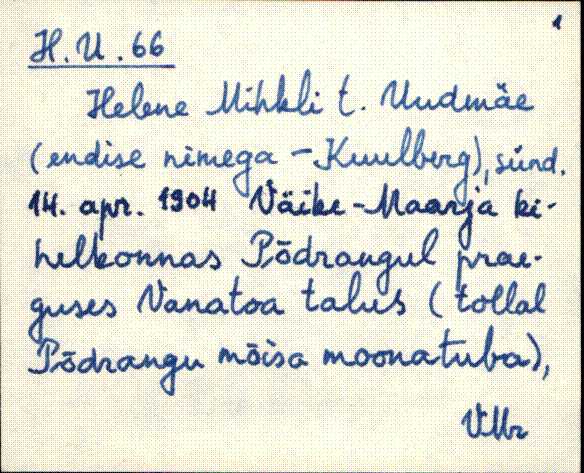 1
H.U.66
Helene Mihkli t. Uudmäe
(endise nimega - Kuulberg), sünd.
14. apr. 1904 Väike-Maarja ki-
helkonnas Põdrangul prae-
guses Vanatoa talus (tollal
Põdrangu mõisa moonatuba),
VMr